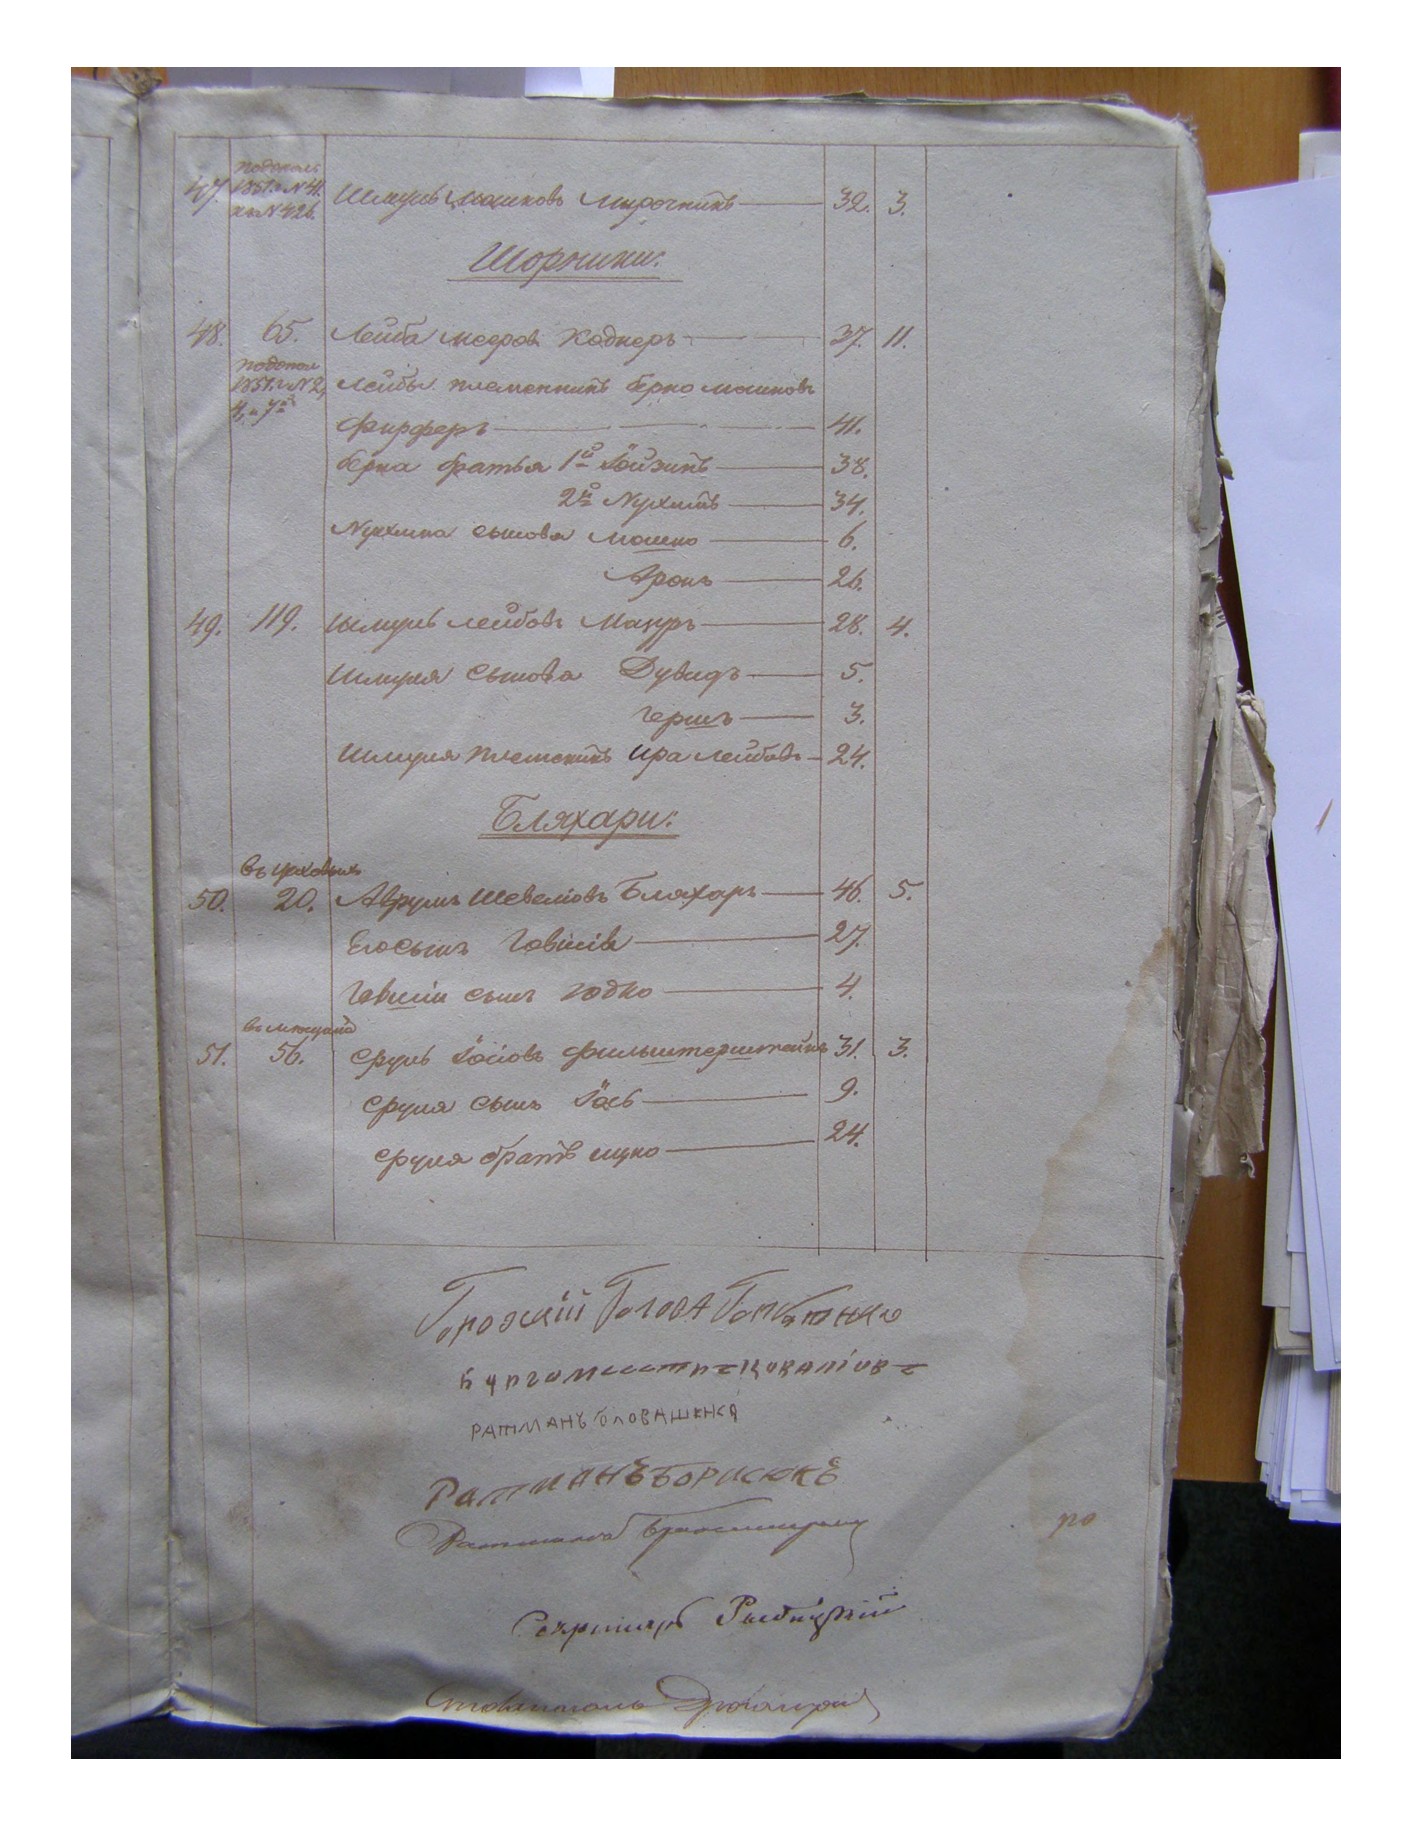 47. 1851. г. N 41. и N 426. Шмуль Мошковъ Мирочникъ 32. 3.
Шорники:
48. 65. Лейба Мееров Коднеръ 37. 11.
1851. г. N 2, 4, и 7й Лейбы племенникъ Берко Мошковъ
Фирферъ 41.
Берка братья 1й Іойзикъ 38.
2й Нухимъ 34.
Нухима сыновя Мошко 6.
Аронъ 26.
49. 119. Шмуль Лейбовъ Макуръ 28. 4.
Шмуля сынова Дувидъ 5.
Гершъ 3.
Шмуля племеникъ Ицра Лейбовъ 24.
Бляхари:
въ цеховыхъ
50. 20. Аврумъ Шевеліовъ Бляхаръ 46. 5.
Его сынъ Говшія 27.
Говшіи сынъ Годко 4.
въ мещана
51. 56. Сруль Іосіовъ Фильштерштейнъ 31. 3.
Сруля сынъ Іось 9.
Сруля братъ Ицко 24.
Городскій Голова
Бургомистръ Коваліовъ
Ратманъ Головашенка
Ратманъ Борисюкъ
Ратманъ
Секретарь